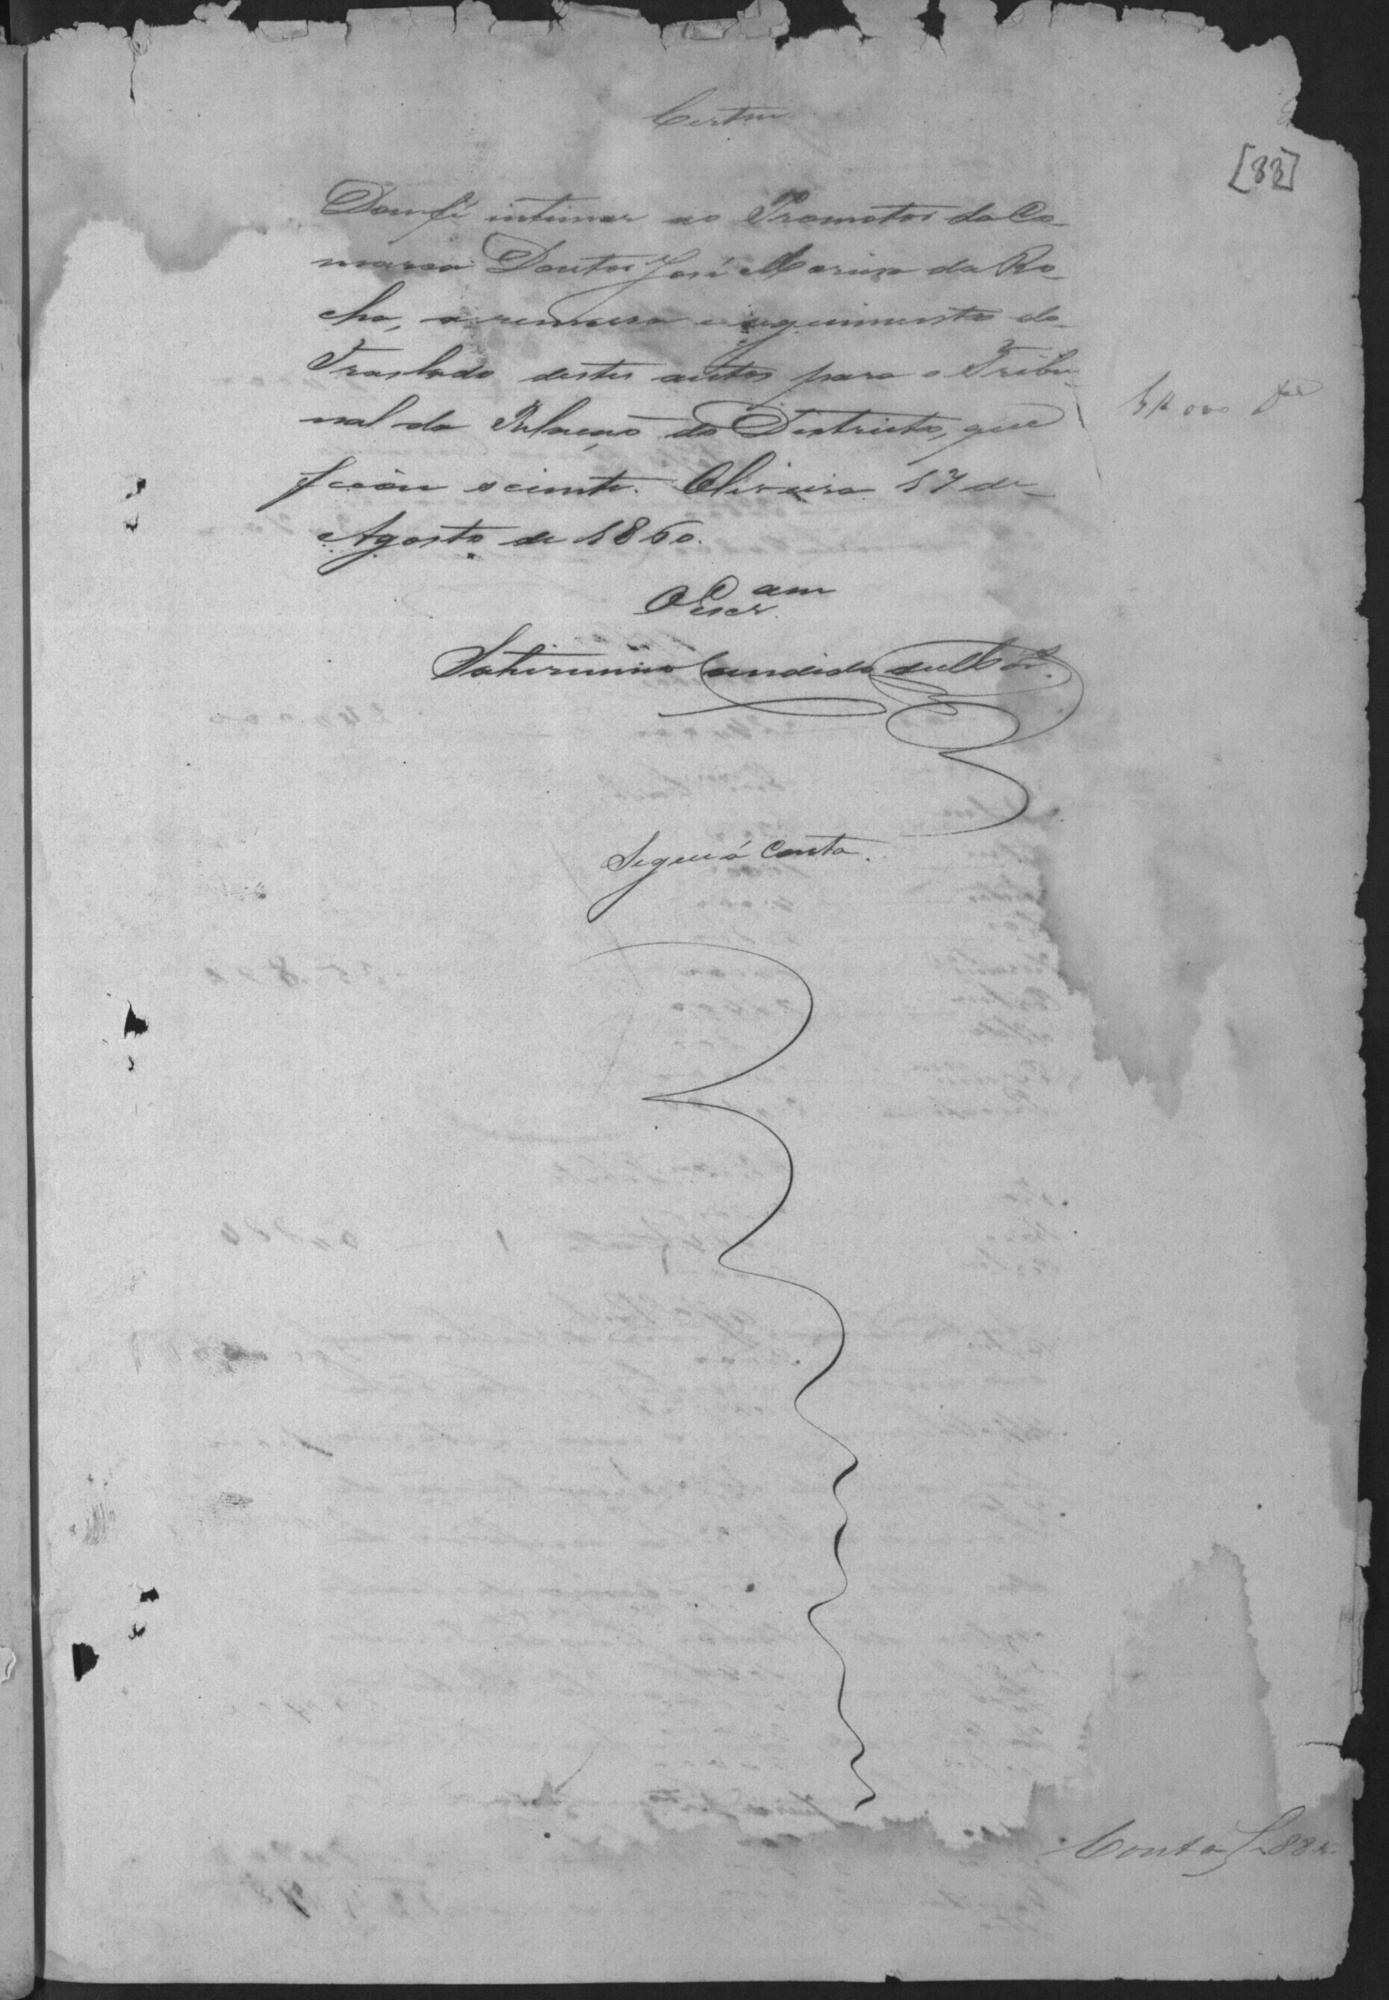 Certm
[83]
Dou fé intimar ao Promotor da Co-
marca Doutor José Marino da Ro-
cha, a remessa e seguimento do
Traslado destes autos para o Tribu-
nal da Relação do Districto, que
ficou sciente. Oliveira 17 de
Agosto de 1860.
1#000
O Escram
Saturnino Candido de
Segue á Conta.
Conta f 88